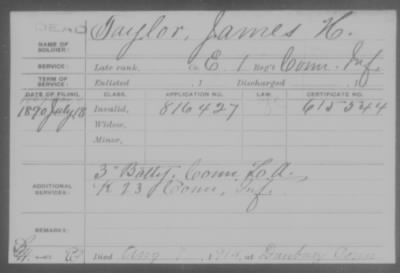 DEAD
Taylor, James H.
NAME OF SOLDIER:
SERVICE: Late rank, Co. E, 1 Reg't Conn. Inf.
TERM OF SERVICE: Enlisted 1 Discharged 1
DATE OF FILING. CLASS. APPLICATION NO. LAW. CERTIFICATE NO.
1890 July 18 Invalid, 816427 615344
Widow,
Minor,
ADDITIONAL SERVICES: 3" Batty. Conn. L.A.
K 23 Conn. Inf.
REMARKS:
Died Aug 1914, at Danbury Conn